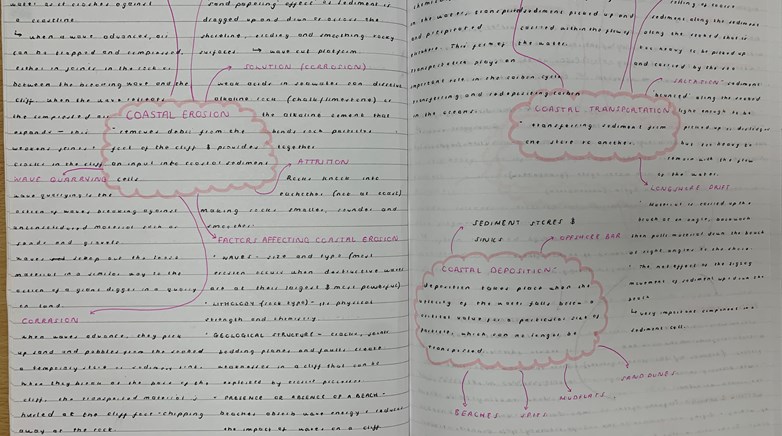 a coastline.
↳ when a wave advances, air
can be trapped and compressed,
either in joints in the rock or
between the breaking wave and the
cliff. When the wave retreats
the compressed air
expands - this
weakens joints &
cracks in the cliff
WAVE QUARRYING
wave quarrying is the
action of waves breaking against
unconsolidated material such as
sands and gravels.
waves scoop out the loose
material in a similar way to the
action of a giant digger in a quarry
on land.
CORRASION
when waves advance, they pick
up sand and pebbles from the seabed
a temporary store or sediment sink.
when they break at the base of the
cliff, the transported material is
hurled at the cliff foot - chipping
away at the rock.
sand papering effect as sediment is
dragged up and down or across the
shoreline, eroding and smoothing rocky
surfaces. ↳ wave cut platform
SOLUTION (CORROSION)
weak acids in seawater can dissolve
alkaline rock (chalk/limestone) or
the alkaline cement that
binds rock particles
together.
COASTAL EROSION
- removes debris from the
foot of the cliff & provides
an input into coastal sediment
cells.
ATTRITION
Rocks knock into
eachother
making rocks smaller, rounder and
smoother.
FACTORS AFFECTING COASTAL EROSION
• WAVES - size and type (most
erosion occurs when destructive waves
are at their largest & most powerful)
• LITHOLOGY (rock type) - its physical
strength and chemistry
• GEOLOGICAL STRUCTURE - cracks, joints,
bedding planes and faults create
weaknesses in a cliff that can be
exploited by erosion processes
• PRESENCE OR ABSENCE OF A BEACH -
beaches absorb wave energy & reduce
the impact of waves on a cliff
in the water, transported
and precipitated
This form of
transportation plays an
important role in the carbon cycle,
transferring and redepositing carbon
in the oceans.
sediment picked up and
carried within the flow
of the water.
rolling of coarse
sediment along the
along the seabed that is
too heavy to be picked up
and carried by the sea
SALTATION sediment
bounced along the seabed
light enough to be
picked up or dislodged
but too heavy to
remain with the flow
of the water.
COASTAL TRANSPORTATION
• transferring sediment from
one store to another.
LONGSHORE DRIFT
• Material is carried up the
beach at an angle, backwash
then pulls material down the beach
at right angles to the shore.
• The net effect of the zigzag
movement of sediment up & down the
beach
↳ very important component in a
sediment cell.
SEDIMENT STORES &
SINKS
OFFSHORE BAR
COASTAL DEPOSITION:
deposition takes place when the
velocity of the water falls below a
critical value for a particular size of
particle, which can no longer be
transported.
BEACHES
SPITS
MUDFLATS
SAND DUNES